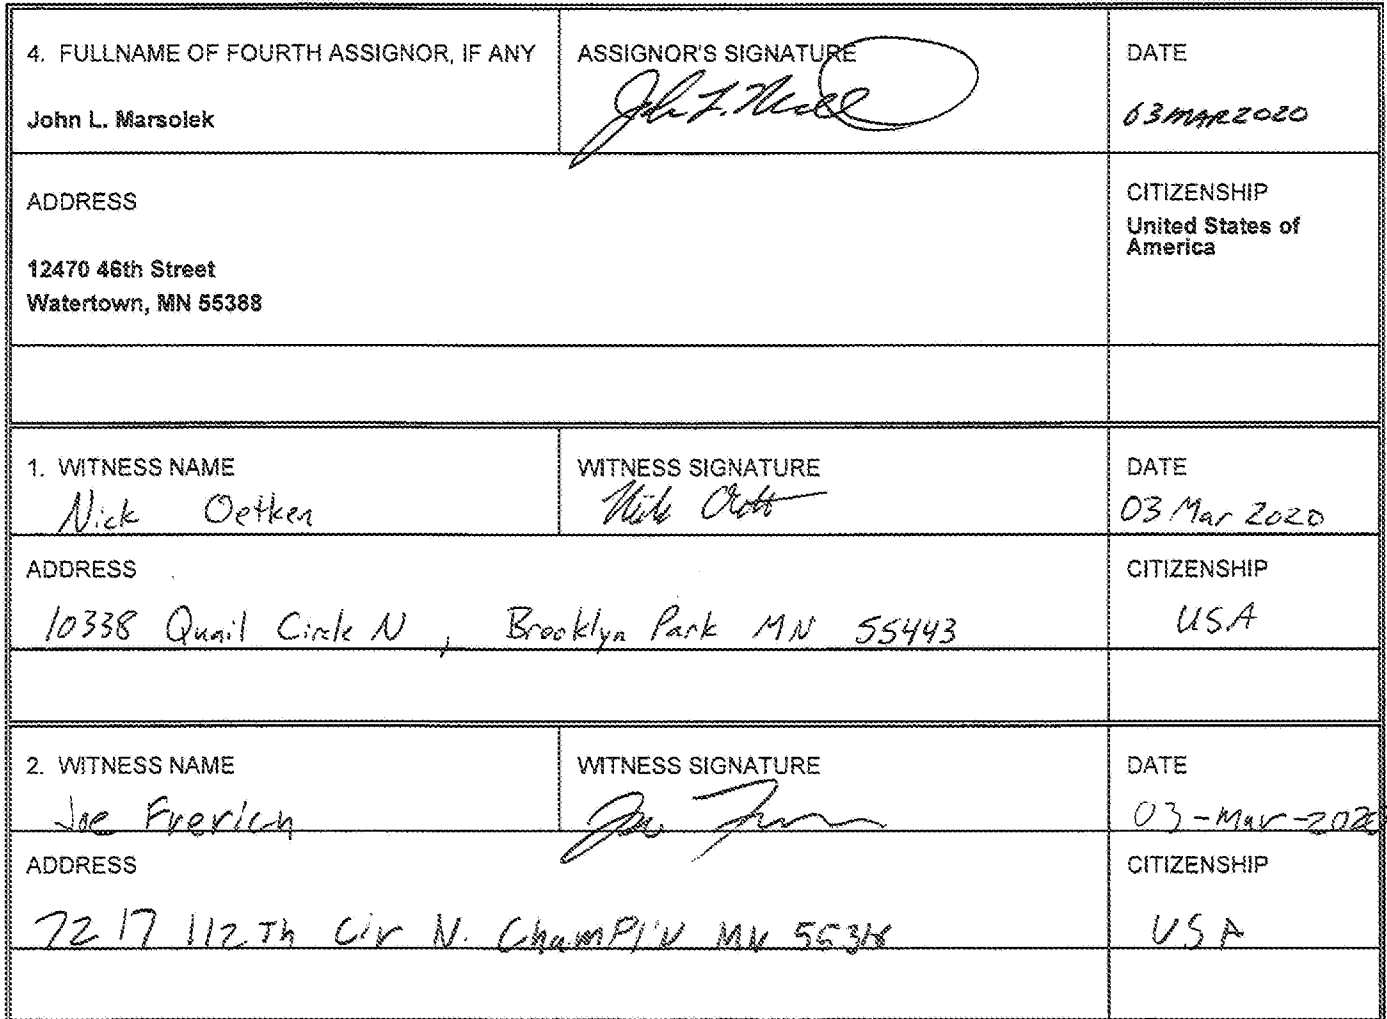 4. FULLNAME OF FOURTH ASSIGNOR, IF ANY
John L. Marsolek
ASSIGNOR'S SIGNATURE
DATE
03MAR2020
ADDRESS
12470 46th Street
Watertown, MN 55388
CITIZENSHIP
United States of
America
1. WITNESS NAME
Nick Oetken
WITNESS SIGNATURE
DATE
03 Mar 2020
ADDRESS
10338 Quail Circle N , Brooklyn Park MN 55443
CITIZENSHIP
USA
2. WITNESS NAME
Joe Frerich
WITNESS SIGNATURE
DATE
03-Mar-2020
ADDRESS
7217 112Th Cir N. ChamPliN MN
CITIZENSHIP
USA